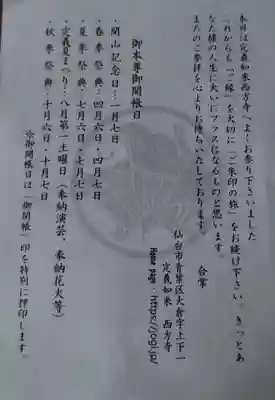 本日は定義如来西方寺へようお参り下さいました。
これからも「ご縁」を大切に「ご朱印の旅」をお続け下さい。きっとあ
なた様の人生に大いにプラスになるものと思います。
またのご参拝を心よりお待ちいたしております。
合掌
仙台市青葉区大倉字上下一
定義如来 西方寺
Home page・https://jogi.jp/
御本尊御開帳日
・開山記念日…一月七日
・春季祭典…四月六日・四月七日
・夏季祭典…七月六日・七月七日
・定義夏まつり…八月第一土曜日(奉納演芸、奉納花火等)
・秋季祭典…十月六日・十月七日
※御開帳日は「御開帳」印を特別に押印します。